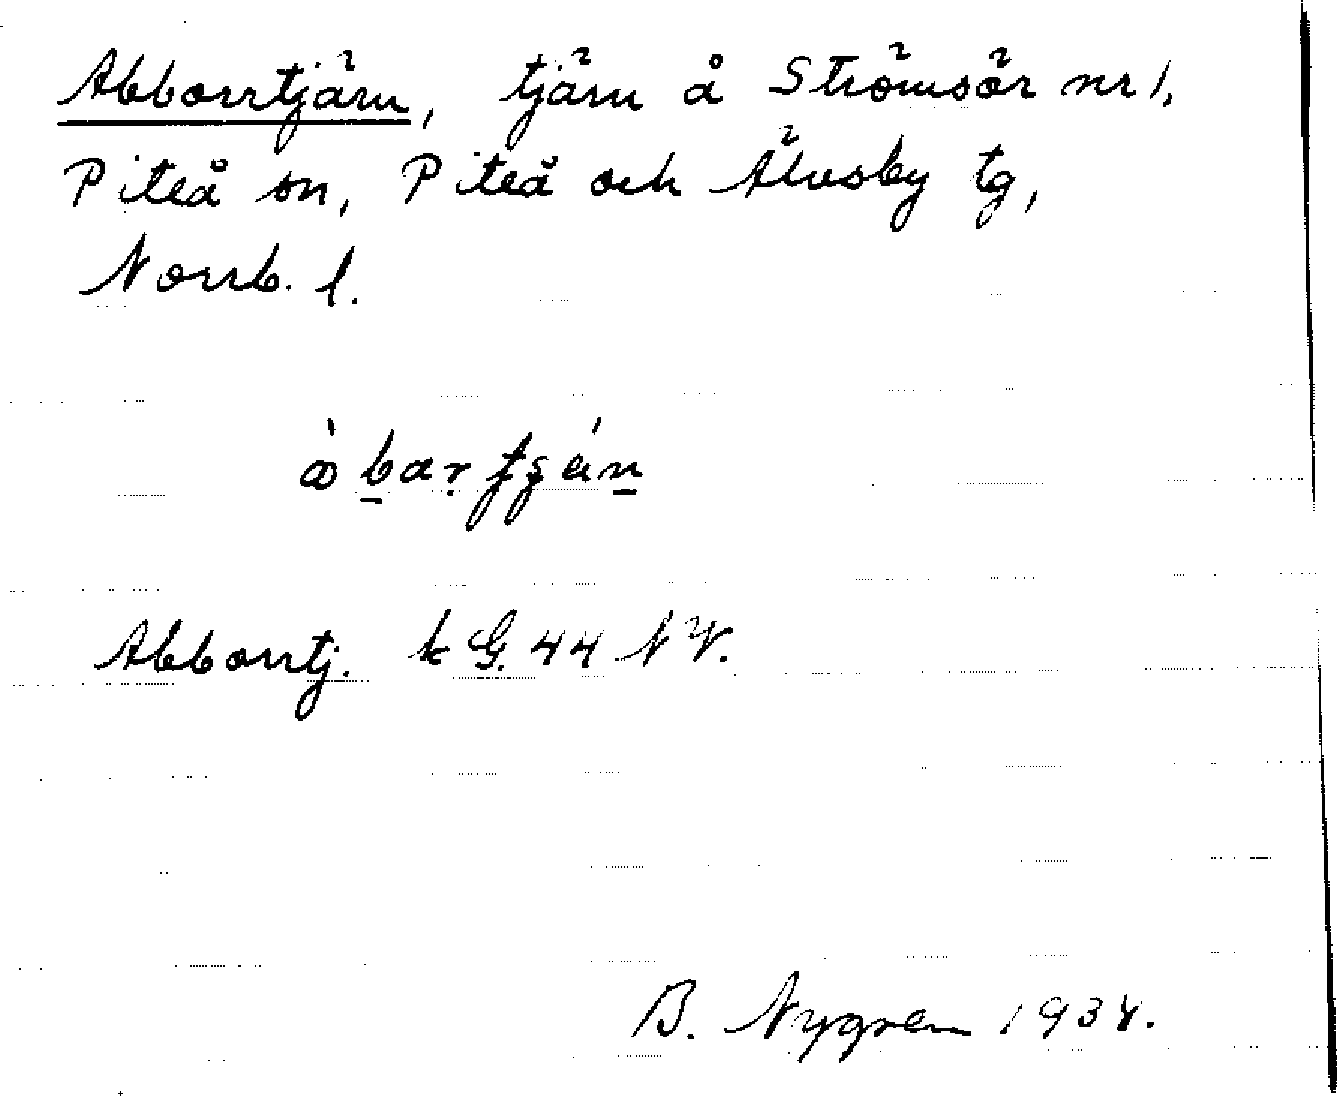 Abborrtjärn, tjärn å Strömsör nr 1,
Piteå sn, Piteå och Älvsby tg,
Norrb. l.
Abborrtj. k G. 44 NV.
B. Nygren 1934.